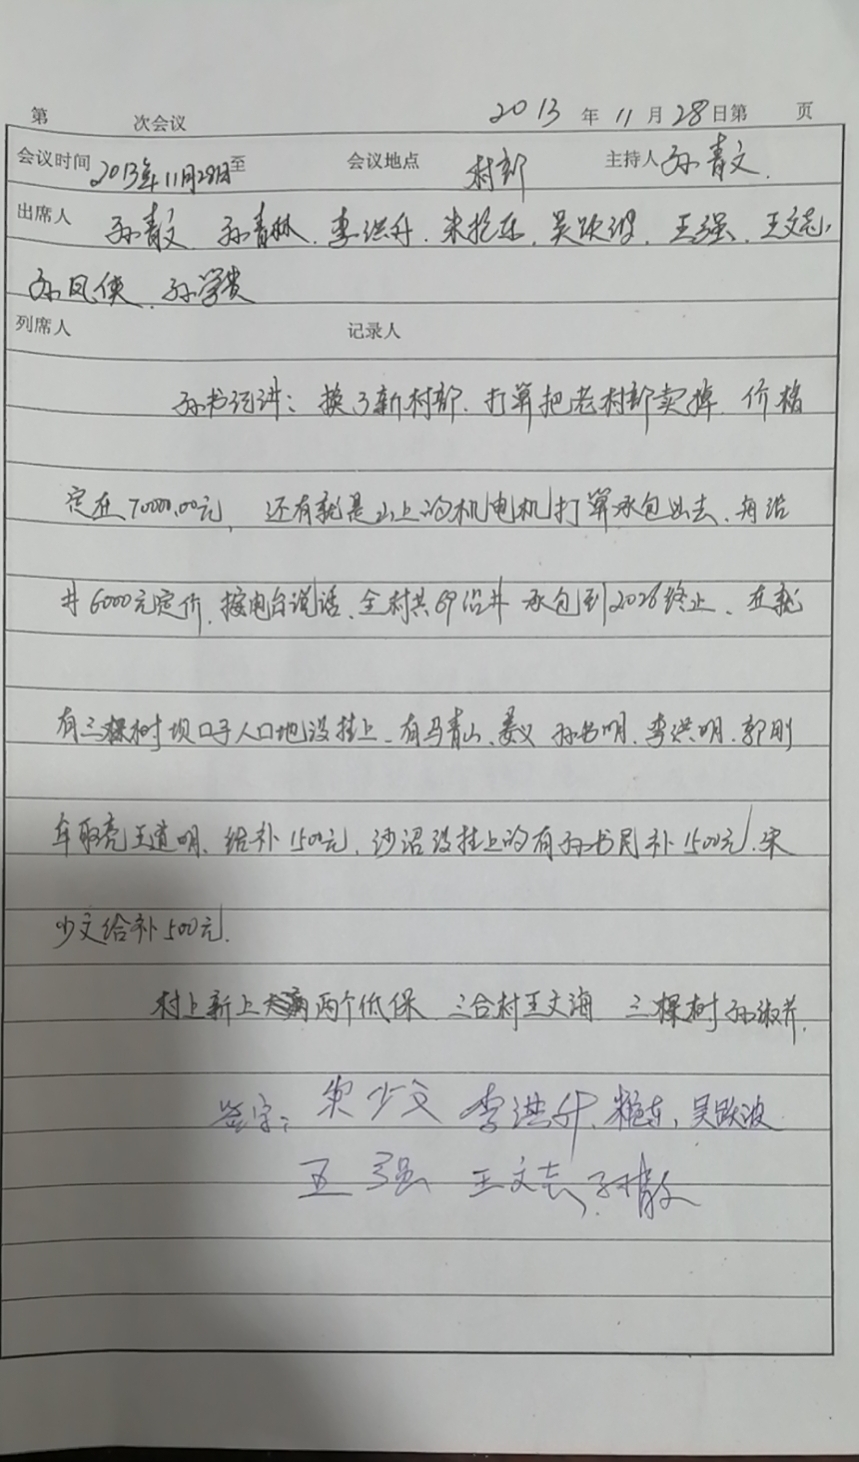 第 次会议 2013 年 11 月 28 日第 页
会议时间 2013年11月28日至 会议地点 村部 主持人 孙青文.
出席人 孙青文 孙青林. 李洪升. 宋艳东. 吴跃波. 王强. 王文志.
孙凤侠. 孙学贵
列席人 记录人
孙书记讲: 换了新村部. 打算把老村部卖掉. 价格
定在70000.00元, 还有就是山上的机电机打算承包出去. 每沿
井6000元定价. 按电台说话. 全村共69沿井 承包到2028终止. 在就
有三棵树坝口子人口地没挂上. 有马青山、 孙书明. 李洪明. 郭刚
王道明. 给补1500元. 沙沼没挂上的有孙书民补1500元. 宋
少文给补500元.
村上新上 两个低保 三合村王文海 三棵树孙淑芹.
签字: 宋少文 李洪升. 艳东, 吴跃波
王强 王文志. 孙青文